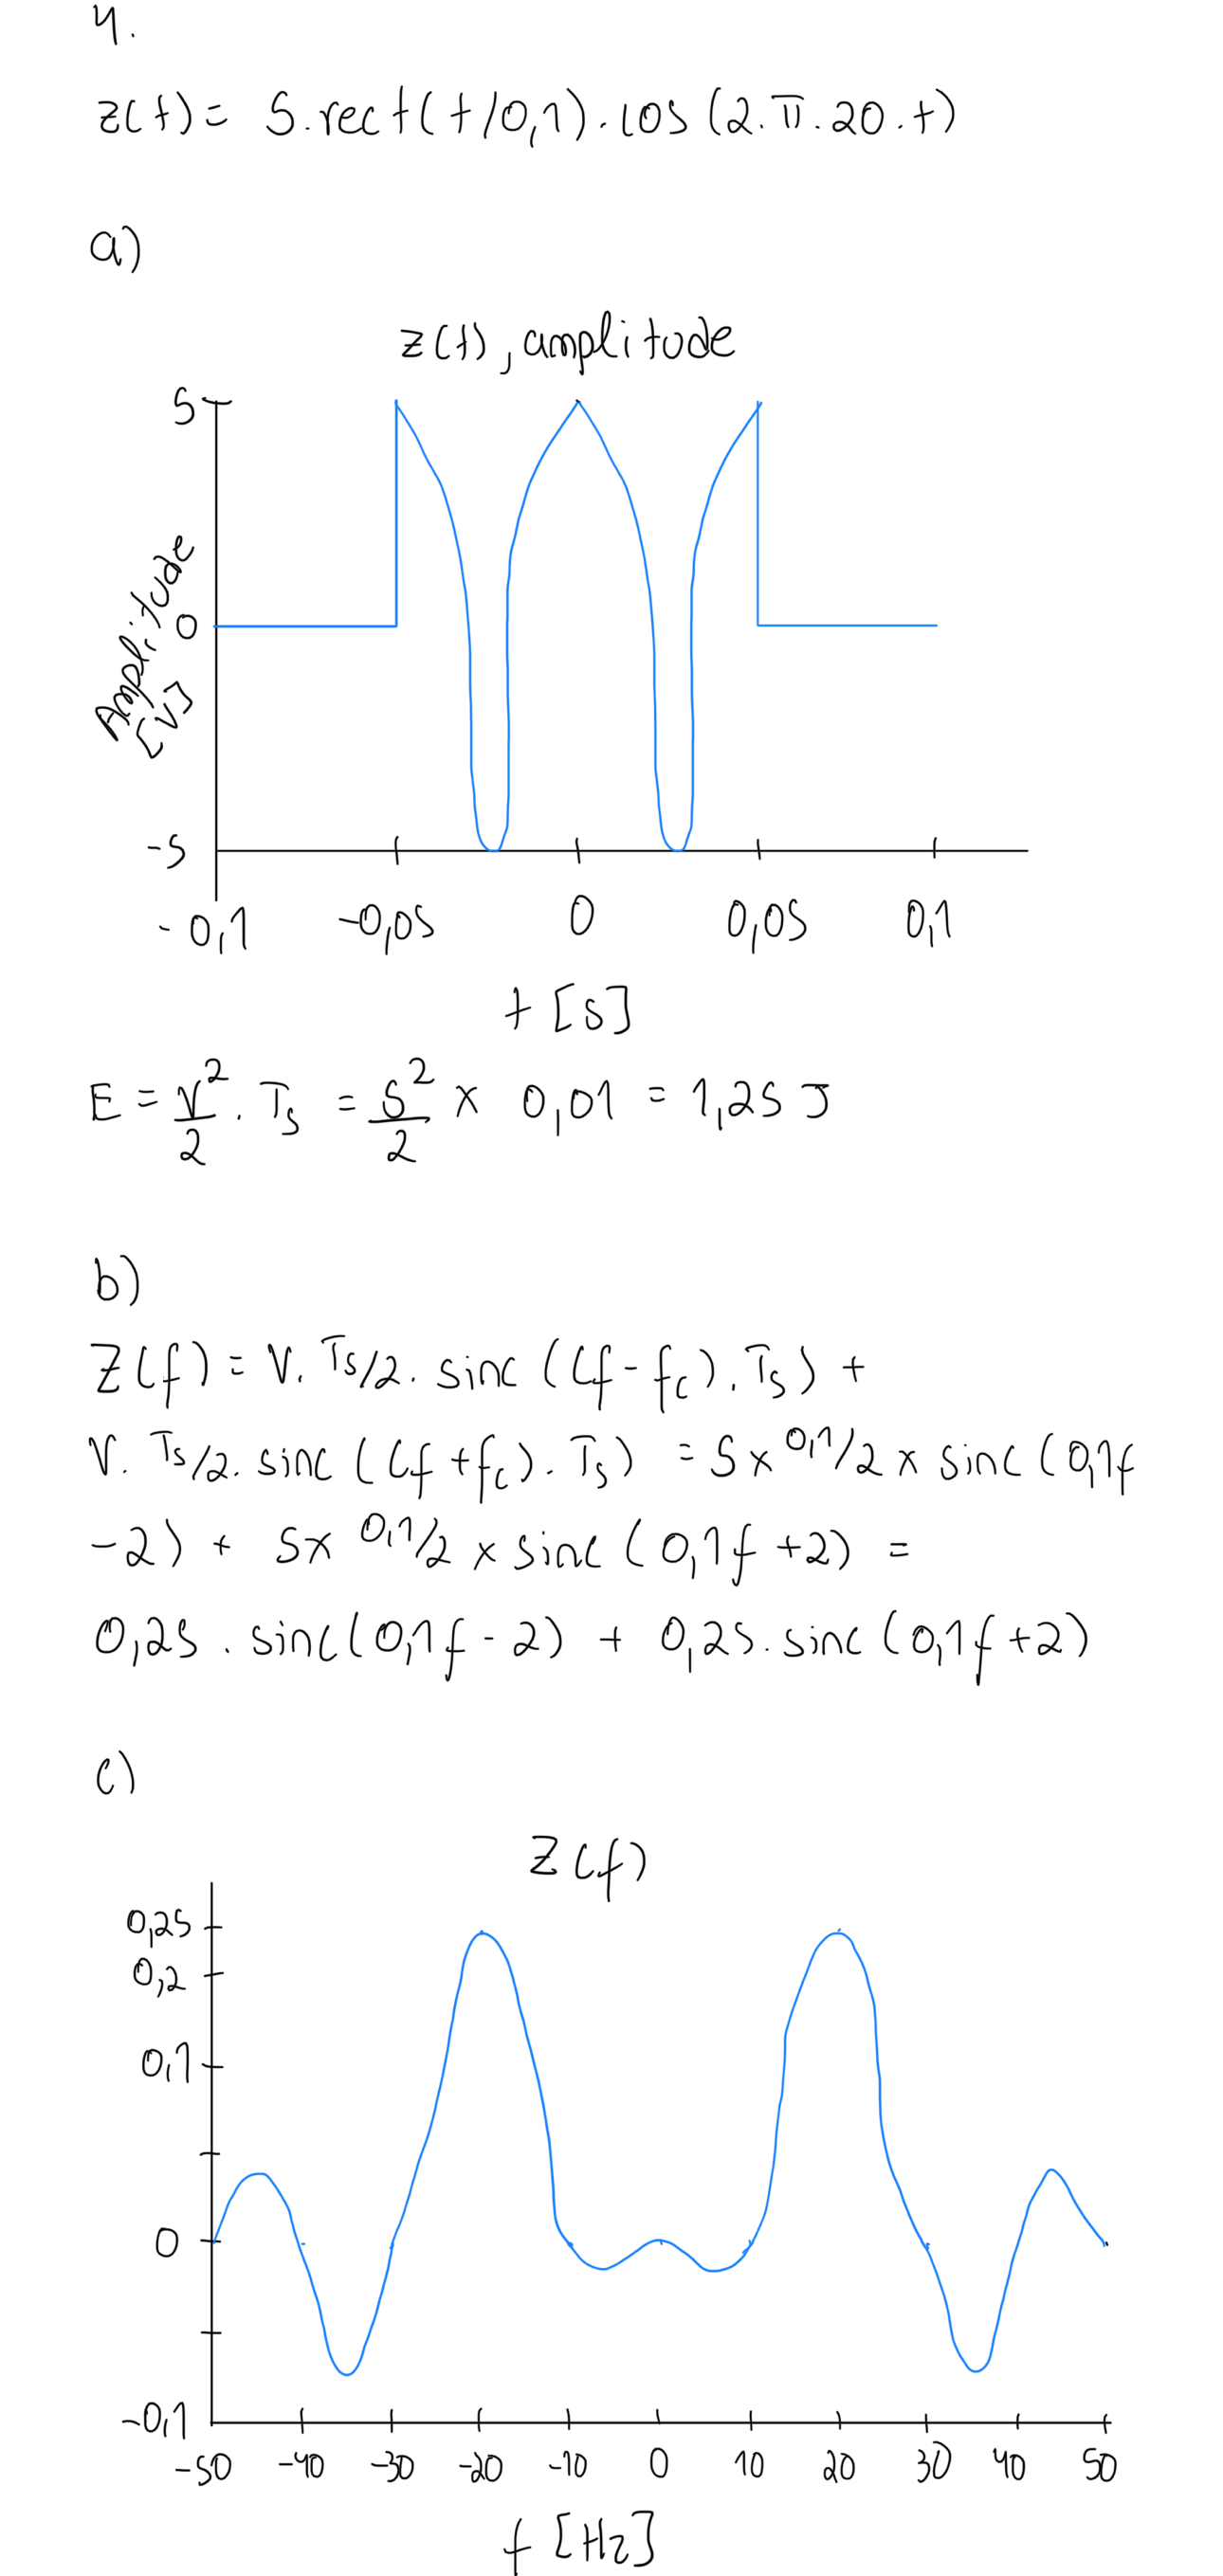 4.
z(t) = 5.rect(t/0,1).cos(2.π.20.t)
a)
z(t), amplitude
5
0
-5
Amplitude
[V]
-0,1 -0,05 0 0,05 0,1
t [s]
E = V²/2 . Ts = 5²/2 x 0,01 = 1,25 J
b)
Z(f) = V. Ts/2. sinc ((f-fc).Ts) +
V. Ts/2. sinc ((f+fc).Ts) = 5x 0,1/2 x sinc (0,1f
-2) + 5x 0,1/2 x sinc (0,1f +2) =
0,25 . sinc(0,1f - 2) + 0,25. sinc (0,1f +2)
c)
Z(f)
0,25
0,2
0,1
0
-0,1
-50 -40 -30 -20 -10 0 10 20 30 40 50
f [Hz]